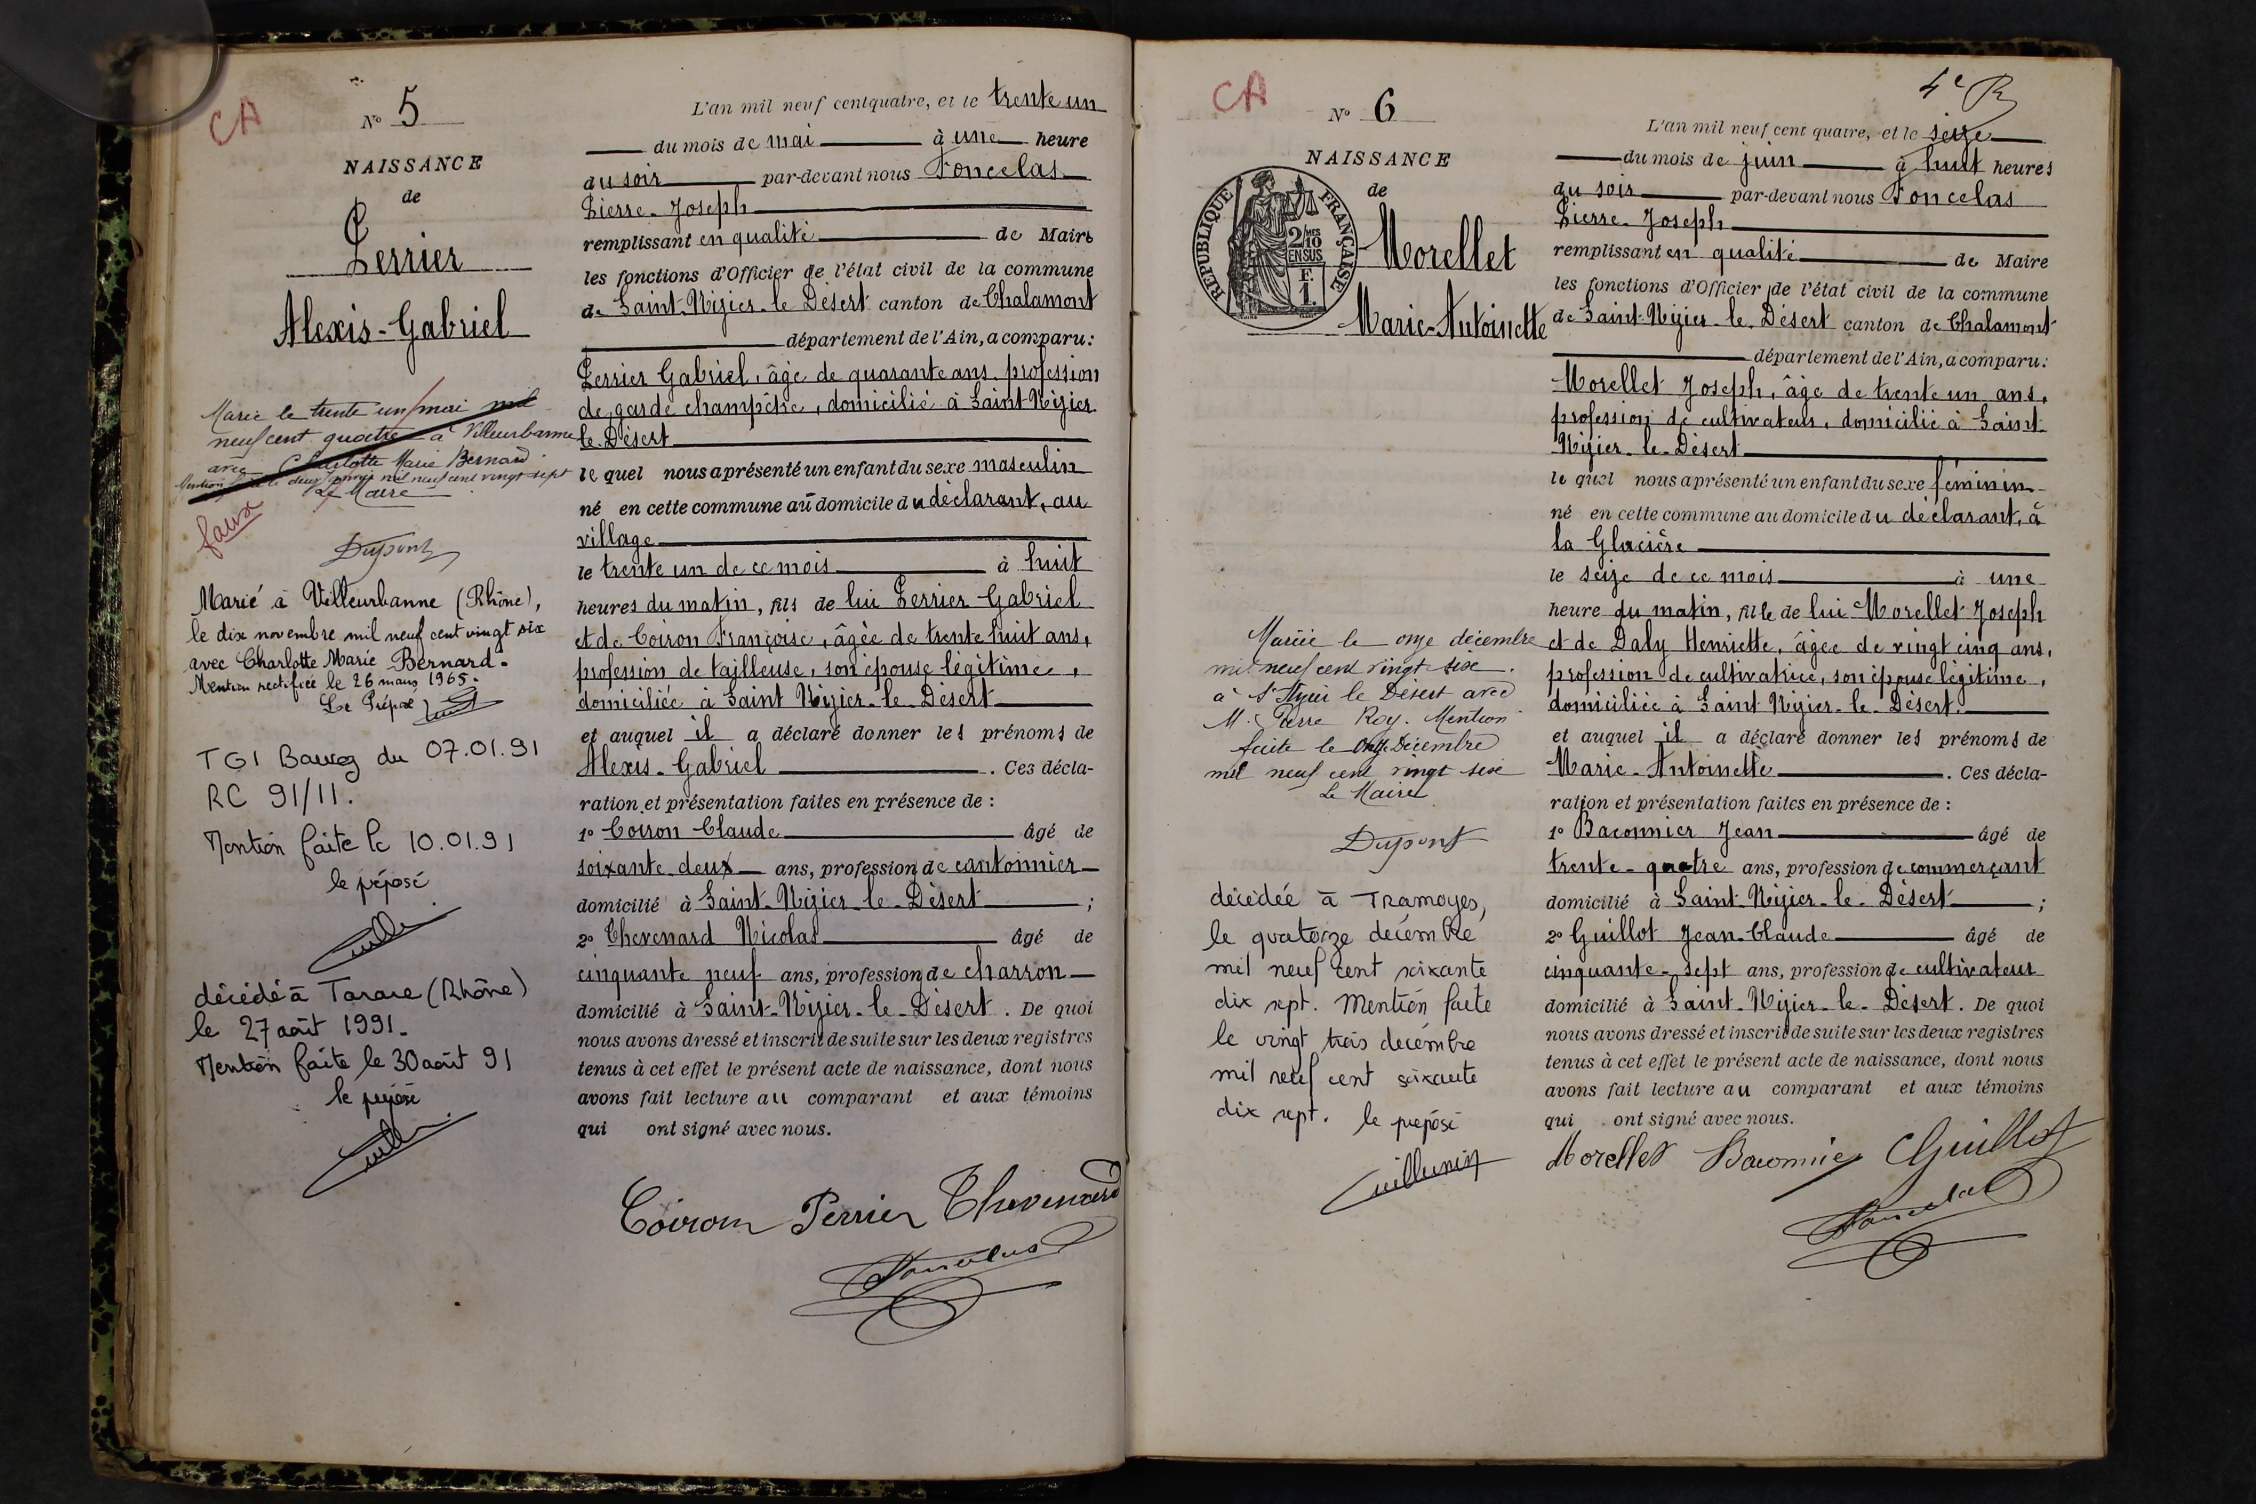 CA
N° 5
NAISSANCE
de
Perrier
Alexis-Gabriel
Marié le trente un mai mil
neuf cent quatre à Villeurbanne
avec Charlotte Marie Bernard.
Mention faite le deux mil neuf cent vingt sept
Le Maire
faux
Dupont
Marié à Villeurbanne (Rhône),
le dix novembre mil neuf cent vingt six
avec Charlotte Marie Bernard.
Mention rectifiée le 26 mars 1965.
Le Préposé
TGI Bourg du 07.01.91
RC 91/11.
Mention faite le 10.01.91
le préposé
décédé à Tarare (Rhône)
le 27 août 1991.
Mention faite le 30 août 91
le préposé
L'an mil neuf cent quatre, et le trente un
du mois de mai à une heure
du soir par-devant nous Poncelas
Pierre-Joseph
remplissant en qualité de Maire
les fonctions d'Officier de l'état civil de la commune
de Saint-Nizier-le-Désert canton de Chalamont
département de l'Ain, a comparu:
Perrier Gabriel, âgé de quarante ans, profession
de garde champêtre, domicilié à Saint Nizier
le-Désert
le quel nous a présenté un enfant du sexe masculin
né en cette commune au domicile du déclarant, au
village
le trente un de ce mois à huit
heures du matin, fils de lui Perrier Gabriel
et de Coiron Françoise, âgée de trente huit ans,
profession de tailleuse, son épouse légitime,
domiciliée à Saint Nizier-le-Désert
et auquel il a déclaré donner les prénoms de
Alexis-Gabriel. Ces décla-
ration et présentation faites en présence de :
1° Coiron Claude âgé de
soixante deux ans, profession de cantonnier
domicilié à Saint-Nizier-le-Désert ;
2° Thevenard Nicolas âgé de
cinquante neuf ans, profession de charron
domicilié à Saint-Nizier-le-Désert. De quoi
nous avons dressé et inscrit de suite sur les deux registres
tenus à cet effet le présent acte de naissance, dont nous
avons fait lecture au comparant et aux témoins
qui ont signé avec nous.
Coiron Perrier Thevenard
Poncelas
CA
4e R
N° 6
NAISSANCE
de
RÉPUBLIQUE FRANÇAISE
2/10 MES
EN SUS
F.
1.
Morellet
Marie-Antoinette
Mariée le onze décembre
mil neuf cent vingt six.
à St Nizier le Désert avec
M. Pierre Roy. Mention
faite le onze Décembre
mil neuf cent vingt six
Le Maire
Dupont
décédée à Tramoyes,
le quatorze décembre
mil neuf cent soixante
dix sept. Mention faite
le vingt trois décembre
mil neuf cent soixante
dix sept. le préposé
L'an mil neuf cent quatre, et le seize
du mois de juin à huit heures
du soir par-devant nous Poncelas
Pierre-Joseph
remplissant en qualité de Maire
les fonctions d'Officier de l'état civil de la commune
de Saint-Nizier-le-Désert canton de Chalamont
département de l'Ain, a comparu:
Morellet Joseph, âgé de trente un ans,
profession de cultivateur, domicilié à Saint-
Nizier-le-Désert
le quel nous a présenté un enfant du sexe féminin
né en cette commune au domicile du déclarant, à
la Glacière
le seize de ce mois à une
heure du matin, fille de lui Morellet Joseph
et de Daly Henriette, âgée de vingt cinq ans,
profession de cultivatrice, son épouse légitime,
domiciliée à Saint Nizier-le-Désert.
et auquel il a déclaré donner les prénoms de
Marie-Antoinette. Ces décla-
ration et présentation faites en présence de :
1° Baconnier Jean âgé de
trente-quatre ans, profession de commerçant
domicilié à Saint-Nizier-le-Désert ;
2° Guillot Jean-Claude âgé de
cinquante-sept ans, profession de cultivateur
domicilié à Saint-Nizier-le-Désert. De quoi
nous avons dressé et inscrit de suite sur les deux registres
tenus à cet effet le présent acte de naissance, dont nous
avons fait lecture au comparant et aux témoins
qui ont signé avec nous.
Morellet Baconnier Guillot
Poncelas